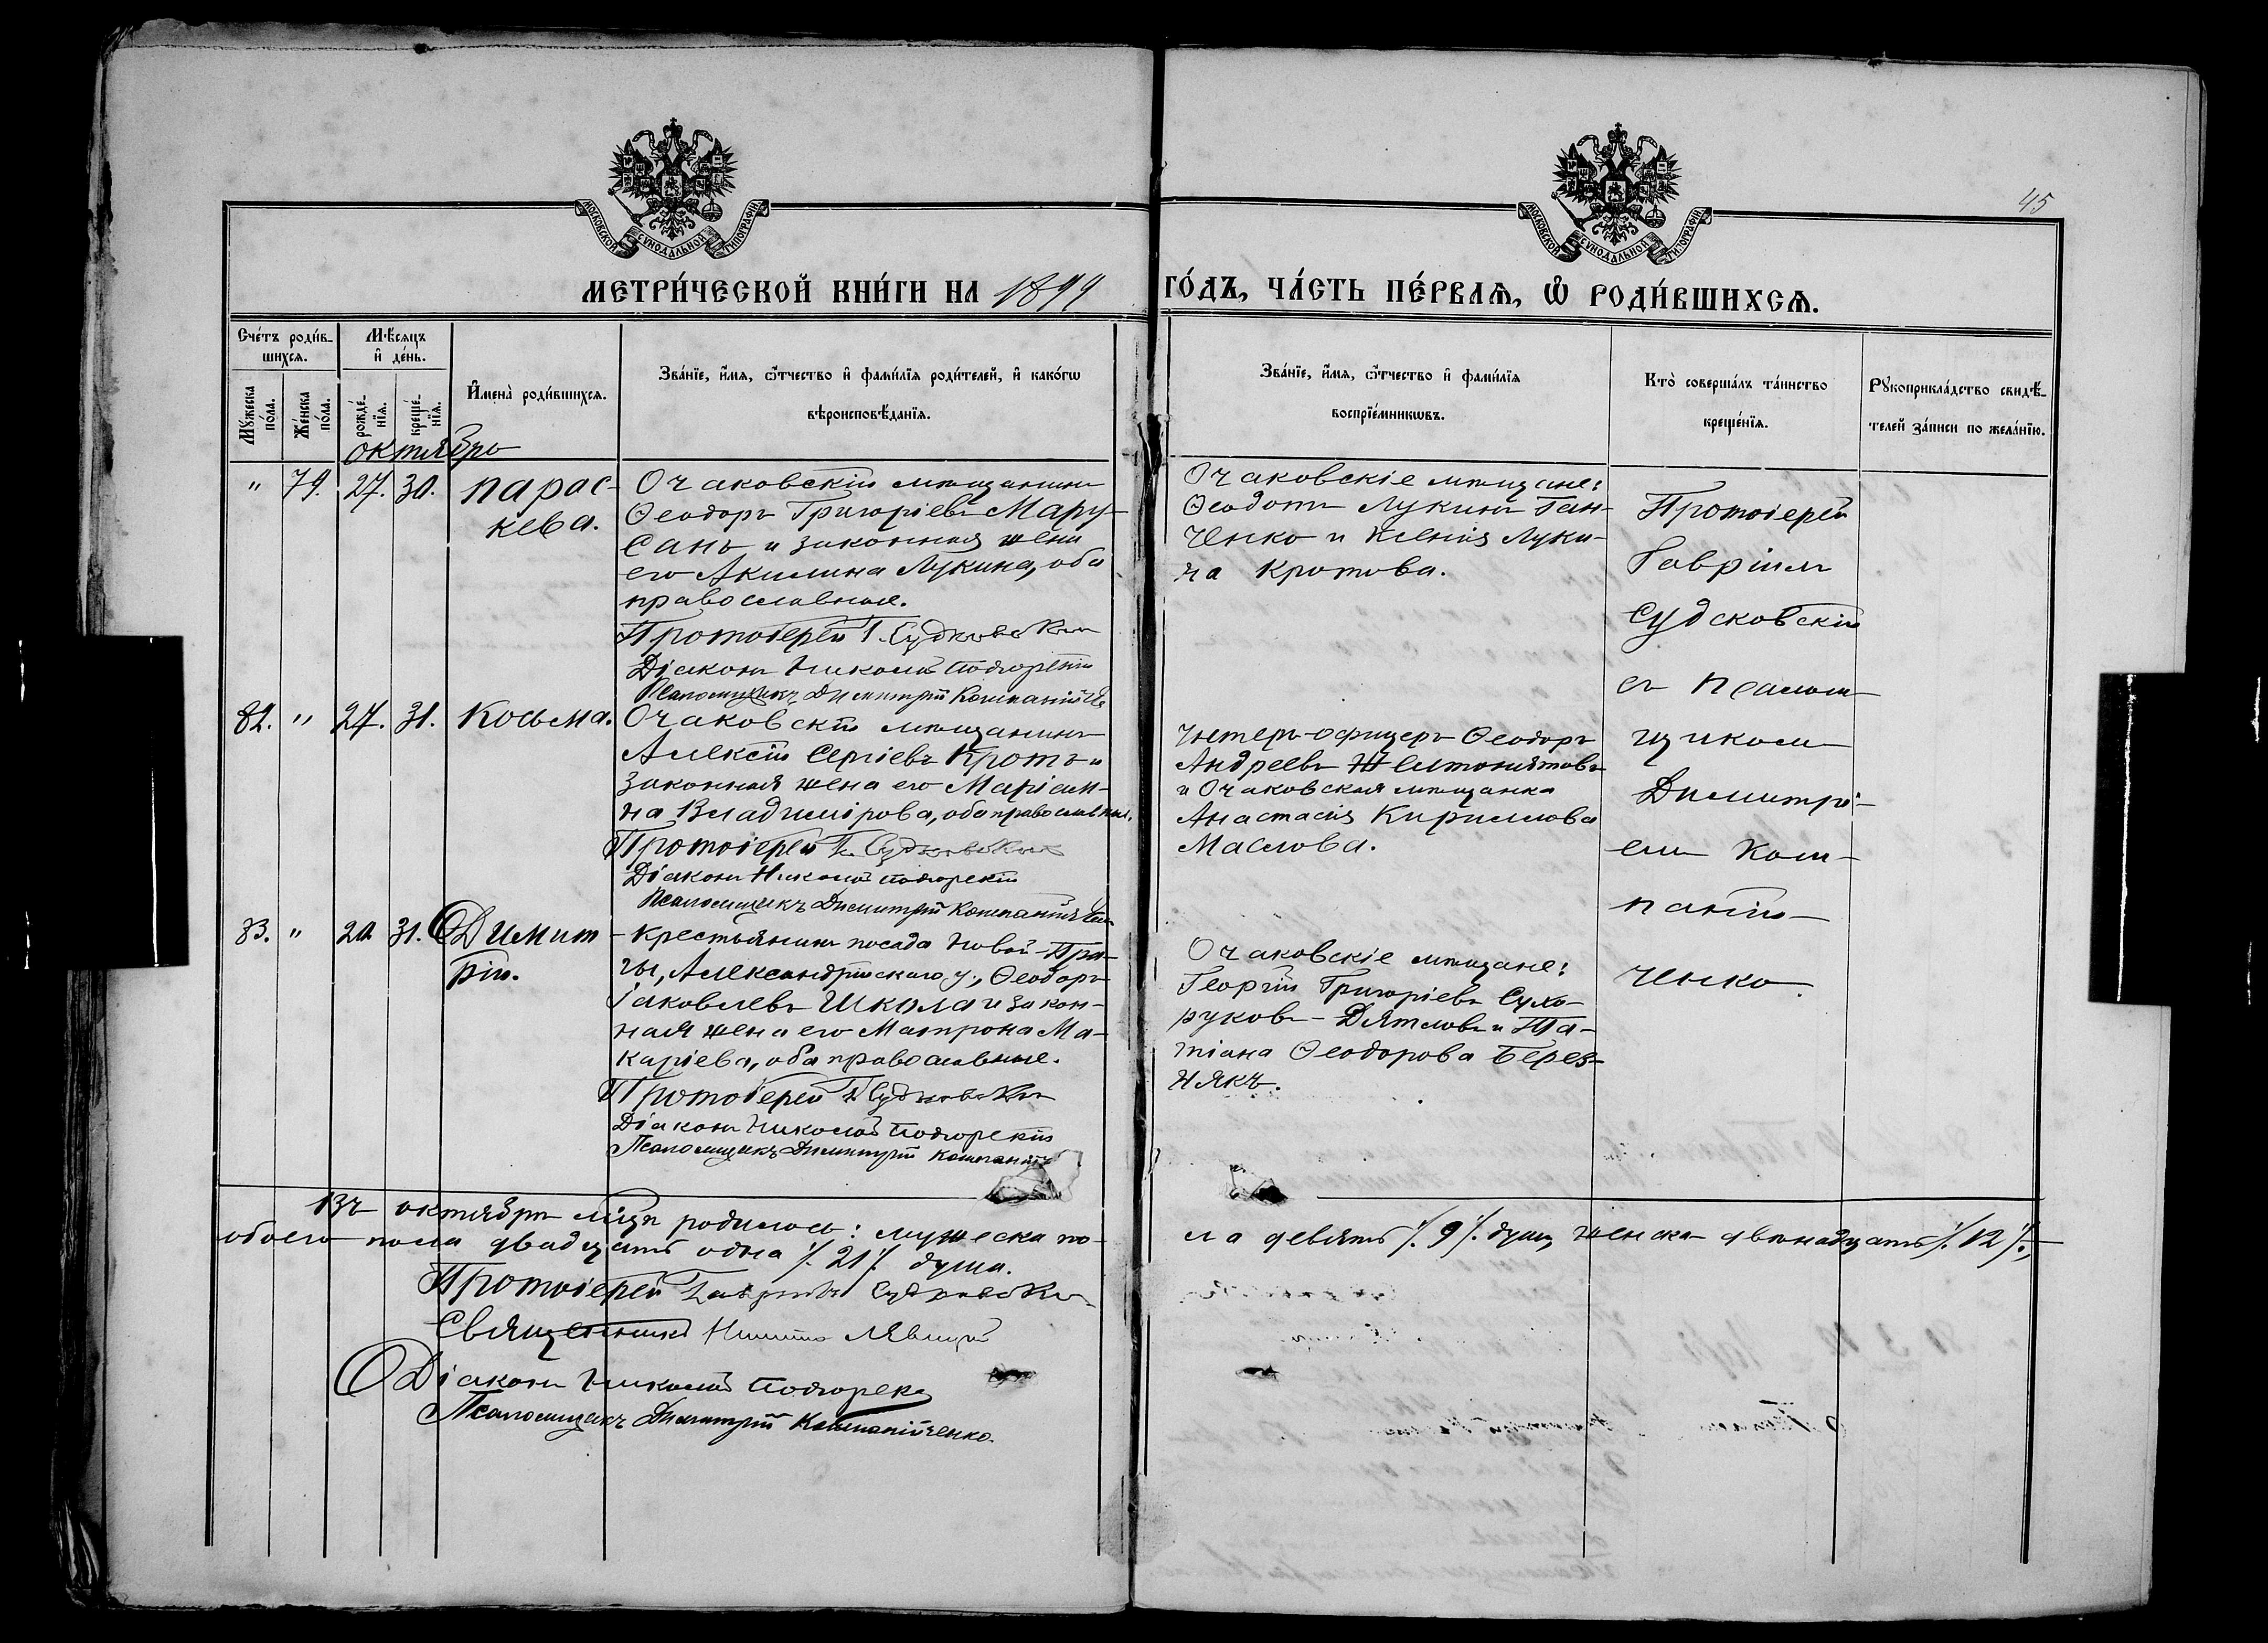 45
МОСКОВСКОЙ СУНОДАЛЬНОЙ ТИПОГРАФІИ
МОСКОВСКОЙ СУНОДАЛЬНОЙ ТИПОГРАФІИ
МЕТРИ́ЧЕСКОЙ КНИ́ГИ НА 1899
ГО́ДЪ, ЧА́СТЬ ПЕ́РВАѦ, Ѡ҆ РОДИ́ВШИХСѦ.
Сче́тъ роди́в-
шихсѧ.
Мꙋ́жеска по́ла.
Же́нска по́ла.
Мѣ́сяцъ
и҆ де́нь.
рожде́-
нїѧ.
креще́-
нїѧ.
И҆мена̀ роди́вшихсѧ.
Зва́нїе, и҆́мѧ, ѻ҆́тчество и҆ фами́лїѧ роди́телей, и҆ како́гѡ
вѣроисповѣ́данїѧ.
Зва́нїе, и҆́мѧ, ѻ҆́тчество и҆ фами́лїѧ
воспрїе́мникѡвъ.
Кто̀ соверша́лъ та́инство
креще́нїѧ.
Рꙋкоприкла́дство свидѣ́-
телей за́писи по жела́нїю.
октябрь
" 79. 27. 30. Парас-
кева.
Очаковскій мѣщанинъ
Ѳеодоръ Григоріевъ Мару-
санъ и законная жена
его Акилина Лукина, оба
православные.
Протоіерей Г. Судковскій
Діаконъ Николай Подгорскій
Псаломщикъ Димитрій Компанійче
Очаковскіе мѣщане:
Ѳеодотъ Лукинъ Ган-
ченко и Ксенія Луки-
на Кротова.
Протоіерей
Гавріилъ
Судсковскій
съ псалом-
щикомъ
Димитрі-
емъ Ком-
паній-
ченко.
82. " 27. 31. Косьма.
Очаковскій мѣщанинъ
Алексій Сергіевъ Кротъ и
законная жена его Маріам-
на Владимірова, оба православные.
Протоіерей Г. Судковскій
Діаконъ Николай Подгорскій
Псаломщикъ Димитрій Компанійчен
Унтеръ-офицеръ Ѳеодоръ
Андреевъ Желтонятовъ
и Очаковская мѣщанка
Анастасія Кириллова
Маслова.
83. " 20. 31. Димит-
рій.
Крестьянинъ посада Новой-Пра-
ги, Александрійскаго у., Ѳеодоръ
Іаковлевъ Школа и закон-
ная жена его Матрона Ма-
каріева, оба православные.
Протоіерей Г. Судковскій
Діаконъ Николай Подгорскій
Псаломщикъ Димитрій Компанійч
Очаковскіе мѣщане:
Георгій Григоріевъ Сухо-
руковъ-Дятловъ и Та-
тіана Ѳеодорова Берез-
някъ.
Въ октябрѣ м͠цѣ родилось: мужеска по-
ла девять /. 9 /. душъ, женска двѣнадцать /. 12 /.,
обоего пола двадцать одна /. 21 /. душа.
Протоіерей Гавріилъ Судковскій
Священникъ Левицкій
Діаконъ Николай Подгорскій
Псаломщикъ Димитрій Компанійченко.